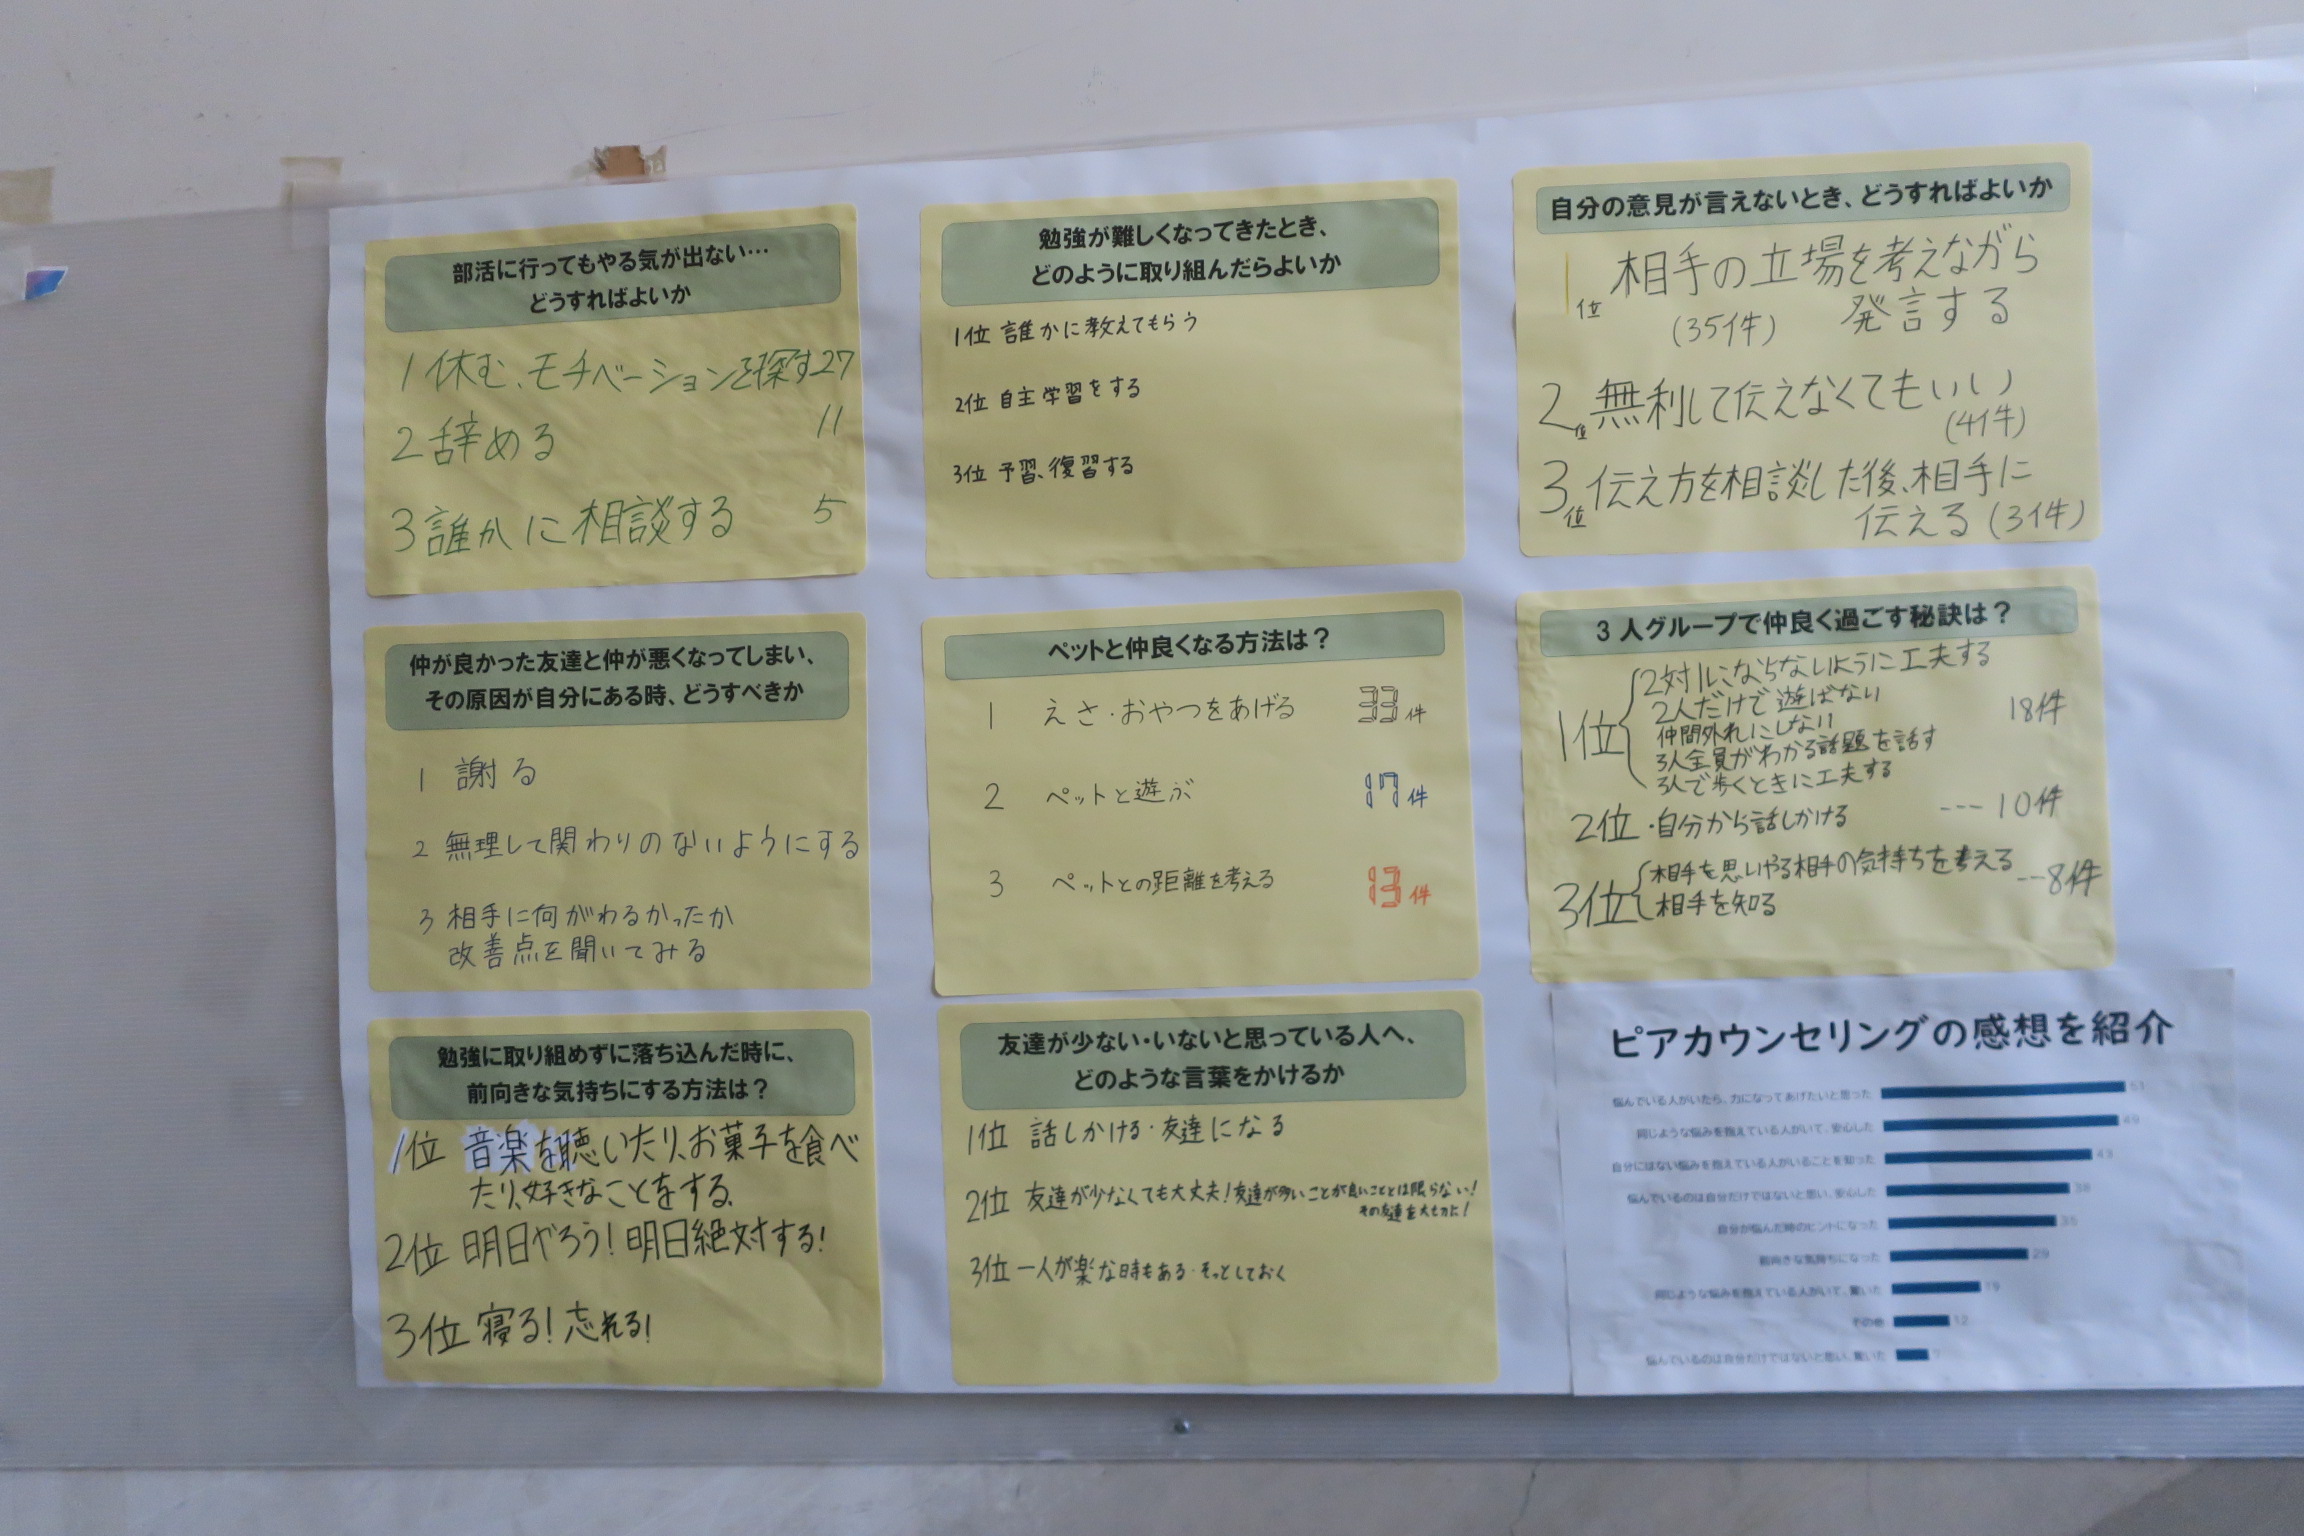 部活に行ってもやる気が出ない…
どうすればよいか
1 休む、モチベーションを探す 27
2 辞める 11
3 誰かに相談する 5
勉強が難しくなってきたとき、
どのように取り組んだらよいか
1位 誰かに教えてもらう
2位 自主学習をする
3位 予習、復習する
自分の意見が言えないとき、どうすればよいか
1位 相手の立場を考えながら
(35件) 発言する
2位 無利して伝えなくてもいい
(4件)
3位 伝え方を相談した後、相手に
伝える (3件)
仲が良かった友達と仲が悪くなってしまい、
その原因が自分にある時、どうすべきか
1 謝る
2 無理して関わりのないようにする
3 相手に何がわるかったか
改善点を聞いてみる
ペットと仲良くなる方法は？
1 えさ・おやつをあげる 33件
2 ペットと遊ぶ 17件
3 ペットとの距離を考える 13件
3人グループで仲良く過ごす秘訣は？
1位 2対1にならないように工夫する
2人だけで遊ばない 18件
仲間外れにしない
3人全員がわかる話題を話す
3人で歩くときに工夫する
2位 ・自分から話しかける --- 10件
3位 相手を思いやる相手の気持ちを考える --- 8件
相手を知る
勉強に取り組めずに落ち込んだ時に、
前向きな気持ちにする方法は？
1位 音楽を聴いたり、お菓子を食べ
たり、好きなことをする。
2位 明日やろう！明日絶対する！
3位 寝る！忘れる！
友達が少ない・いないと思っている人へ、
どのような言葉をかけるか
1位 話しかける・友達になる
2位 友達が少なくても大丈夫！友達が多いことが良いこととは限らない！
その友達を大切に！
3位 一人が楽な時もある・そっとしておく
ピアカウンセリングの感想を紹介
悩んでいる人がいたら、力になってあげたいと思った 51
同じような悩みを抱えている人がいて、安心した 49
自分にはない悩みを抱えている人がいることを知った 43
悩んでいるのは自分だけではないと思い、安心した 38
自分が悩んだ時のヒントになった 35
前向きな気持ちになった 29
同じような悩みを抱えている人がいて、驚いた 19
その他 12
悩んでいるのは自分だけではないと思い、驚いた 7